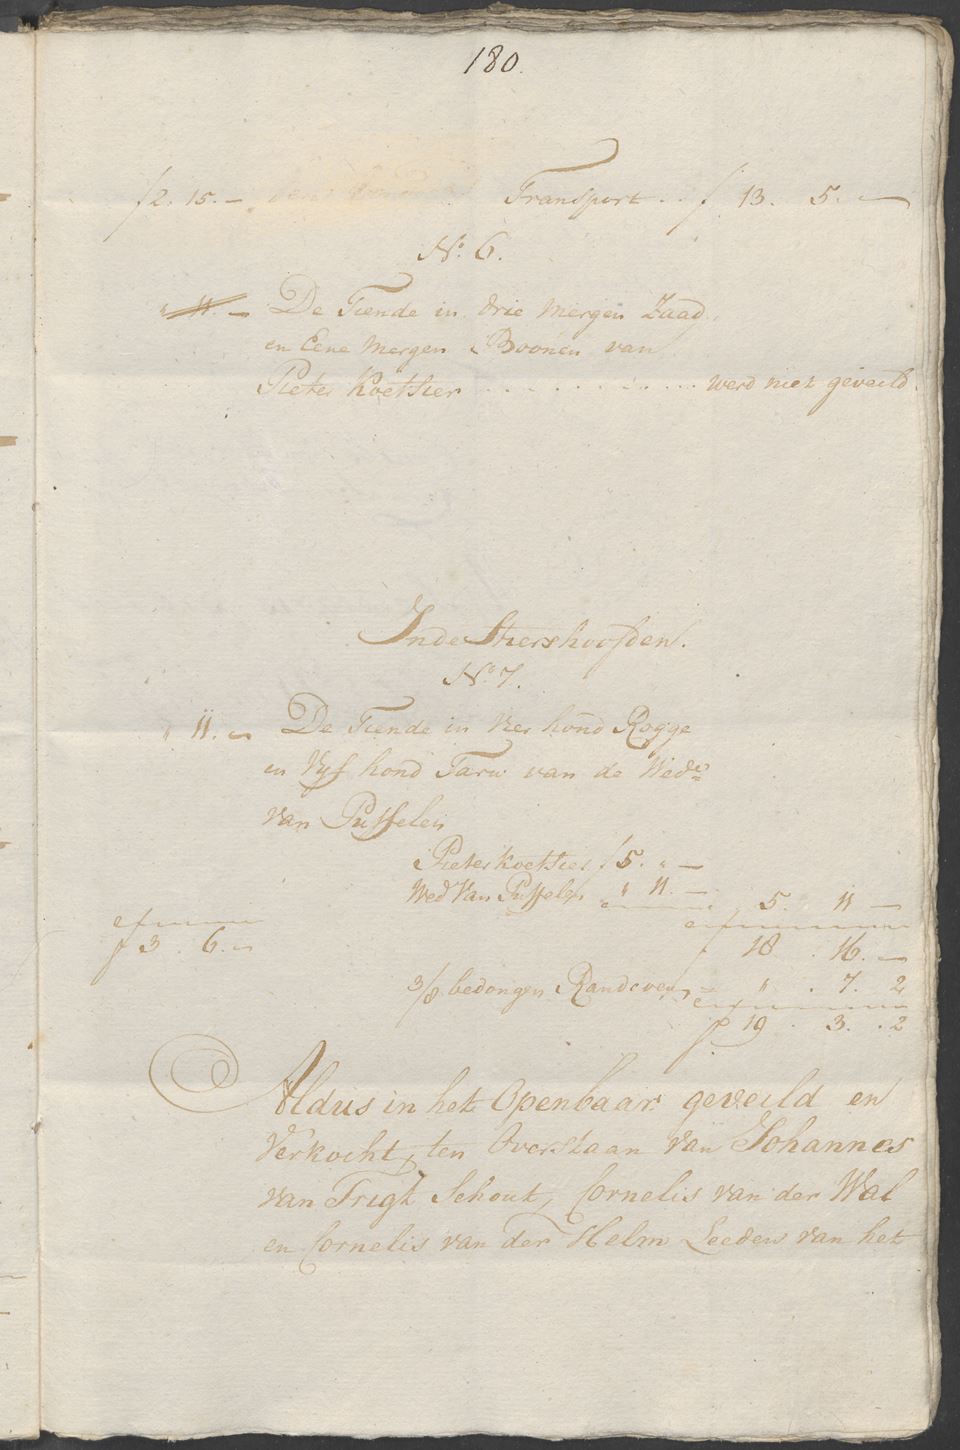 180.
f 2. 15. — Transport . . f 13. 5. —
No. 6.
" 11. — De Tiende in drie Mergen Zaad
en Eene Mergen Boonen van
Pieter Koetsier . . . . . . . . . . werd niet geveild.
In de Stiershoofden.
No. 7.
" 11. — De Tiende in Vier hond Rogge
en Vyf hond Tarw van de Wede
van Puffelen
Pieter Koetsier f 5. " —
Wed Van Puffelen " 11. — 5. 11 —
f 3. 6. — f 18. 16. —
3/8 bedongen Rand " . 7. 2
f 19. 3. 2
Aldus in het Openbaar geveild en
Verkocht, ten Overstaan van Johannes
van Trigt Schout, Cornelis van der Wal
en Cornelis van der Helm Leeden van het